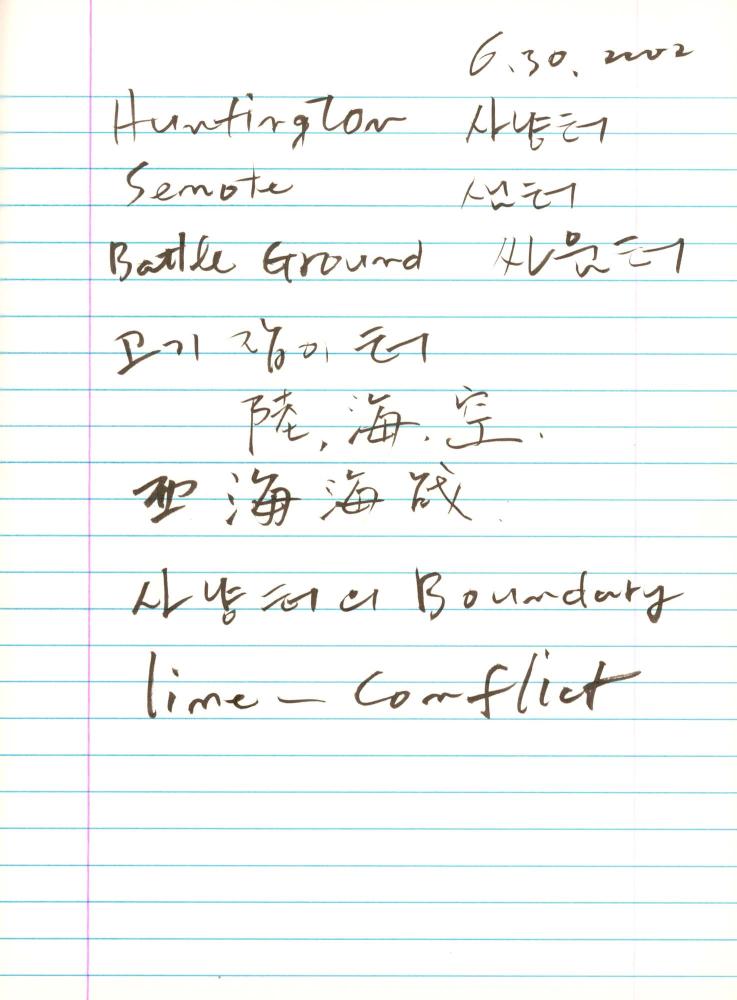 6.30.2002
Huntington 사냥터
Semote 샘터
Battle Ground 싸움터
고기 잡이 터
陸, 海. 空.
西海海戰
사냥터의 Boundary
line - Conflict